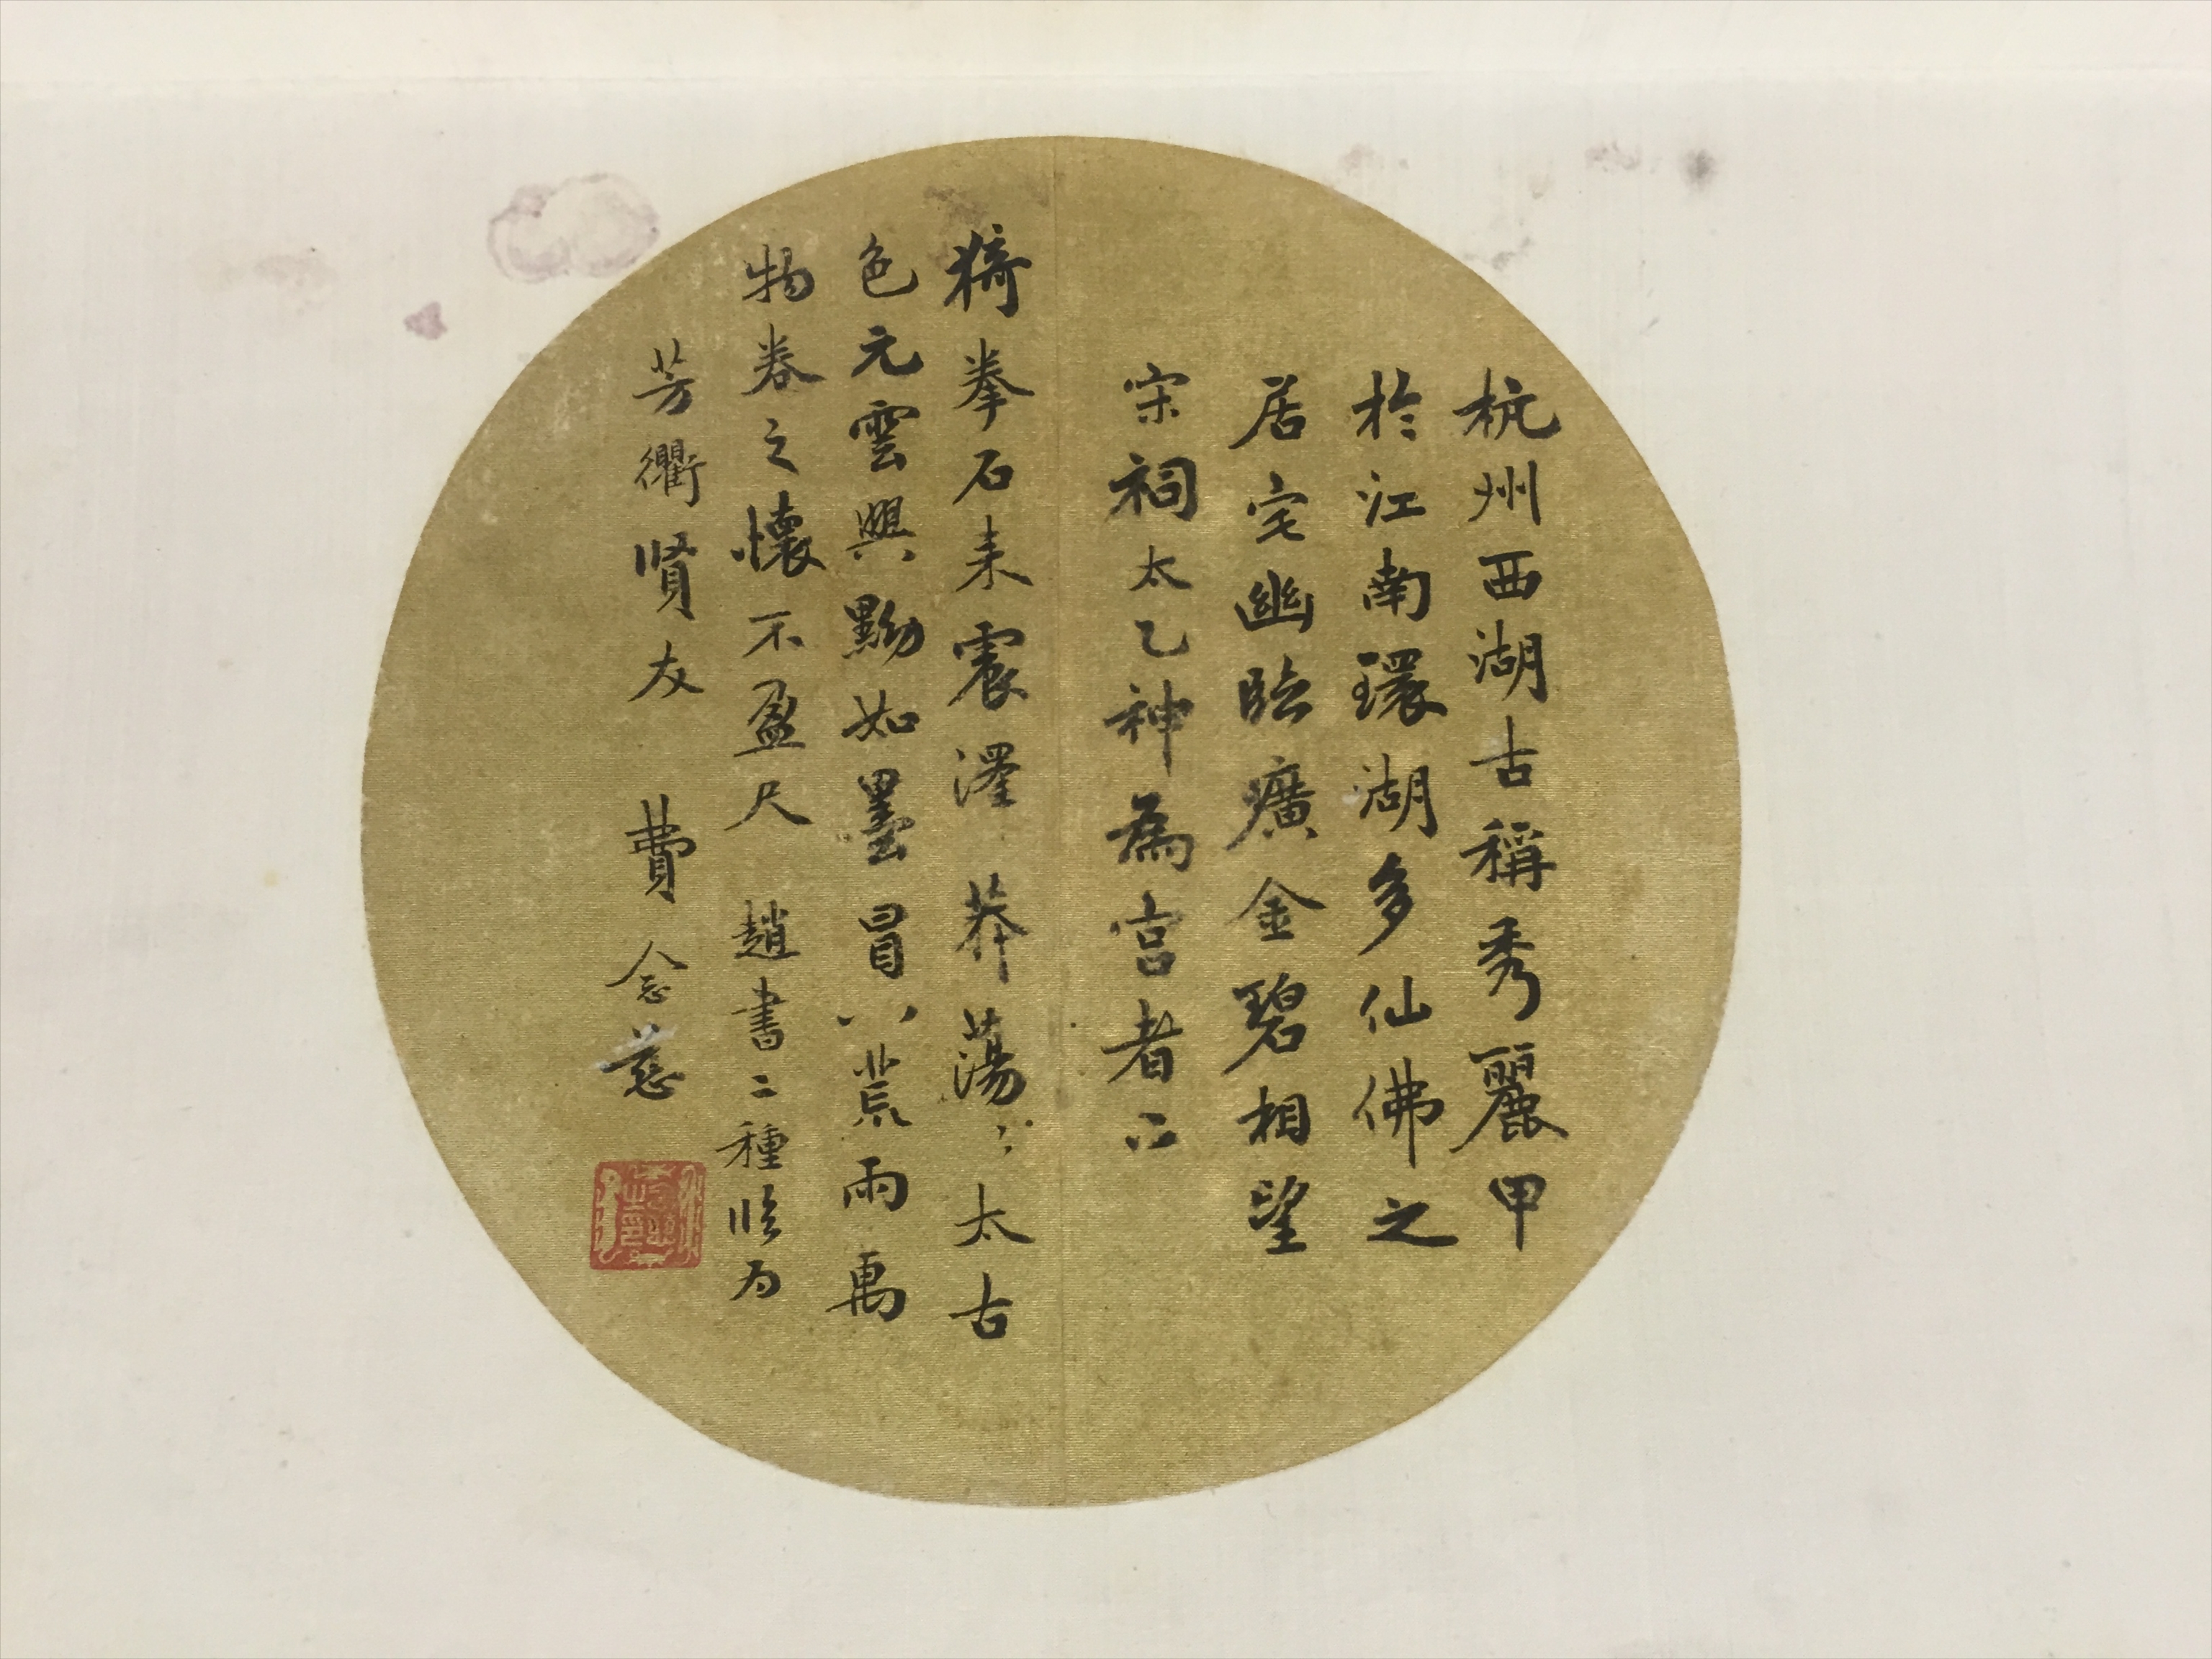 杭州西湖古稱秀麗甲
於江南環湖多仙佛之
居宅幽臨曠金碧相望
宋祠太乙神為宮者二
猗拳石來震澤莽蕩〻太古
色元雲興黝如墨冒八荒雨萬
物卷之懷不盈尺 趙書二種臨為
芳衢賢友 費念慈